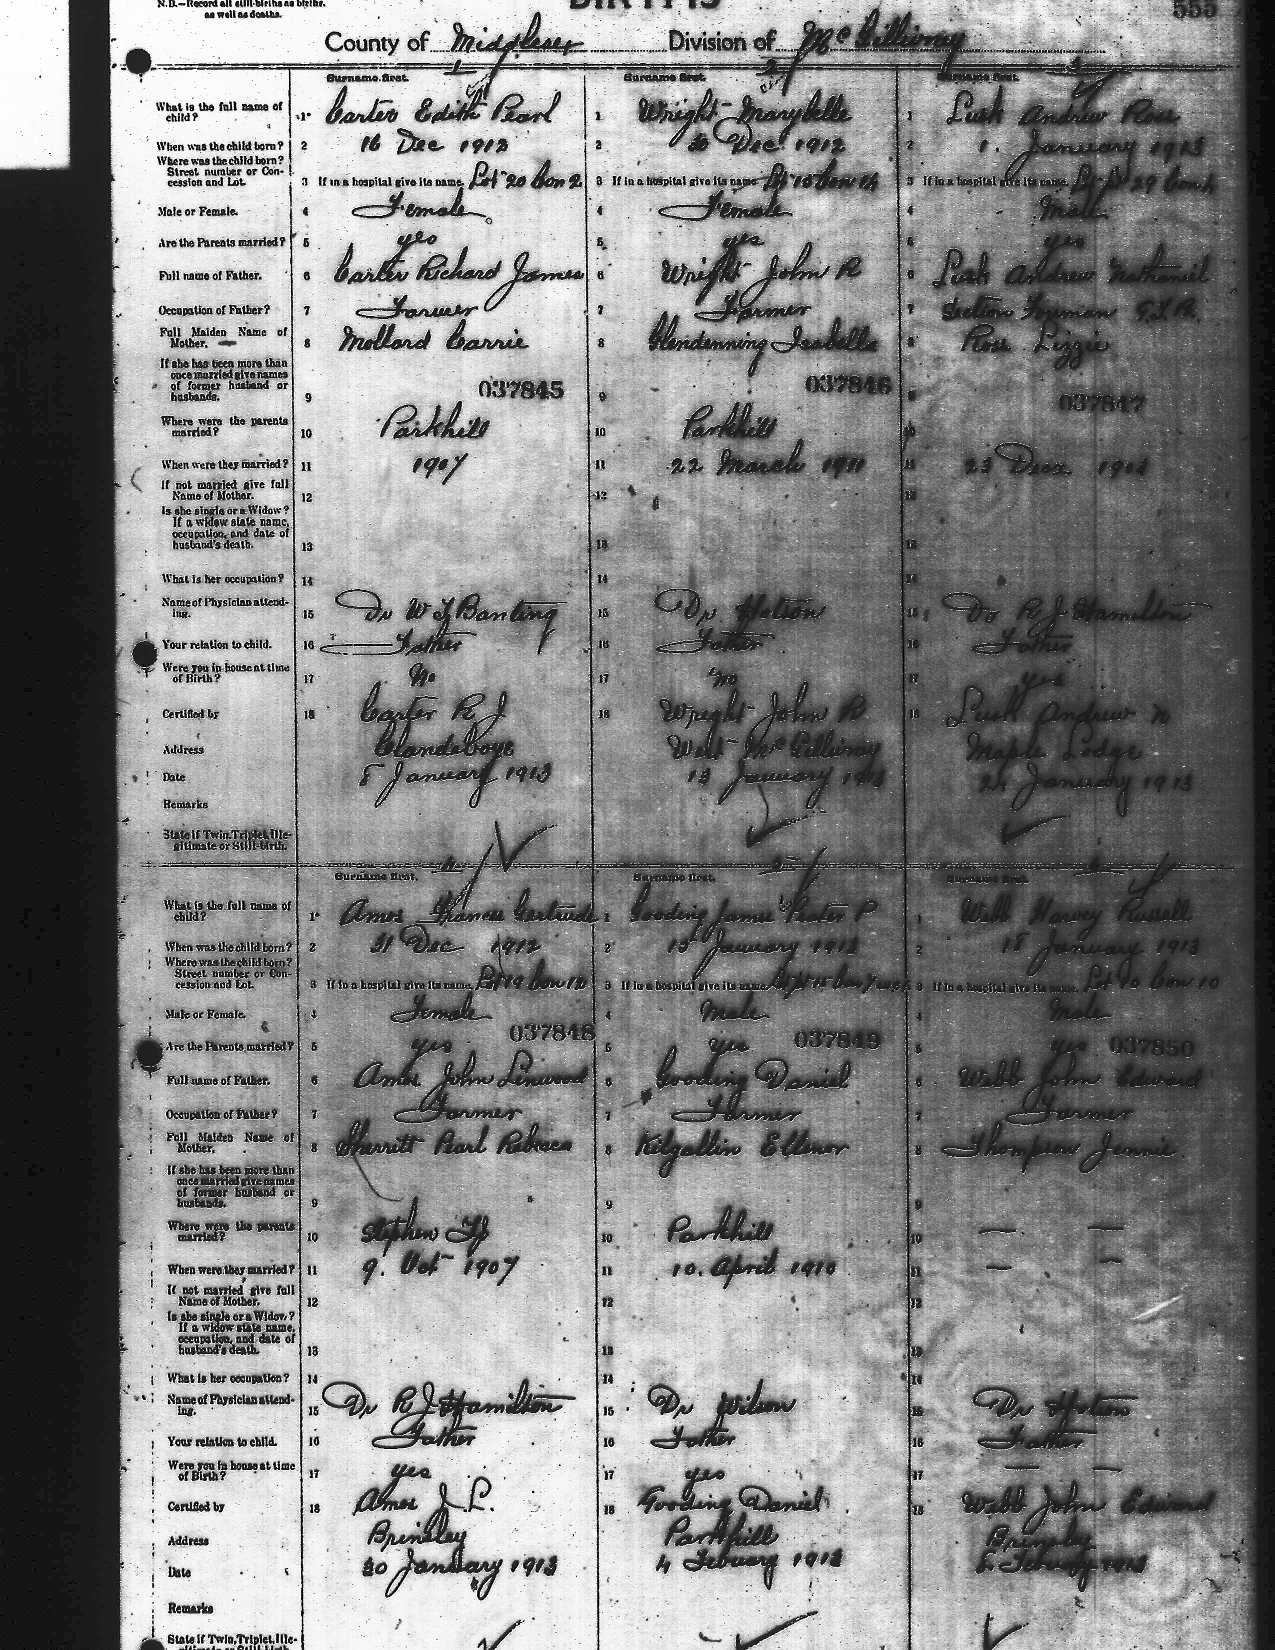 N.B.—Record all still-births as births, as well as deaths.
BIRTHS
555
County of Middlesex Division of McGillivray
1 2 3
Surname first. Surname first. Surname first.
What is the full name of child? 1 Carter Edith Pearl 1 Wright Marybelle 1 Lusk Andrew Ross
When was the child born? 2 16 Dec 1912 2 Dec 1912 2 1. January 1913
Where was the child born? Street number or Concession and Lot. 3 If in a hospital give its name. Lot 20 Con 2 3 If in a hospital give its name. Con 14 3 If in a hospital give its name. 29 Con
Male or Female. 4 Female 4 Female 4 Male
Are the Parents married? 5 yes 5 yes 5 yes
Full name of Father. 6 Carter Richard James 6 Wright John R 6 Lusk Andrew Nathaniel
Occupation of Father? 7 Farmer 7 Farmer 7 Section Foreman G.T.R.
Full Maiden Name of Mother. 8 Mollard Carrie 8 Glendenning Isabella 8 Ross Lizzie
If she has been more than once married give names of former husband or husbands. 9 037845 9 037846 9 037847
Where were the parents married? 10 Parkhill 10 Parkhill 10
When were they married? 11 1907 11 22 March 1911 11 23 Dec
If not married give full Name of Mother. 12 12 12
Is she single or a Widow? If a widow state name, occupation, and date of husband's death. 13 13 13
What is her occupation? 14 14 14
Name of Physician attending. 15 Dr W G Banting 15 Dr Hotson 15 Dr R J Hamilton
Your relation to child. 16 Father 16 Father 16 Father
Were you in house at time of Birth? 17 No 17 no 17 yes
Certified by 18 Carter R J 18 Wright John R 18 Lusk Andrew N
Address Clandeboye West McGillivray Maple Lodge
Date 8 January 1913 13 January 1913 January 1913
Remarks
State if Twin, Triplet, Illegitimate or Still-birth.
4 5 6
Surname first. Surname first. Surname first.
What is the full name of child? 1 Amos Frances Gertrude 1 Gooding James Peter P 1 Webb Harvey Russell
When was the child born? 2 31 Dec 1912 2 15 January 1913 2 18 January 1913
Where was the child born? Street number or Concession and Lot. 3 If in a hospital give its name. Lot 19 Con 10 3 If in a hospital give its name. Con 7 3 If in a hospital give its name. Lot 10 Con 10
Male or Female. 4 Female 4 Male 4 Male
037848 037849 037850
Are the Parents married? 5 yes 5 yes 5 yes
Full name of Father. 6 Amos John Linwood 6 Gooding Daniel 6 Webb John Edward
Occupation of Father? 7 Farmer 7 Farmer 7 Farmer
Full Maiden Name of Mother. 8 Sherritt Pearl Rebecca 8 Kilgallin Ellenor 8 Thompson Jennie
If she has been more than once married give names of former husband or husbands. 9 9 9
Where were the parents married? 10 Stephen Tp 10 Parkhill 10 — —
When were they married? 11 9. Oct 1907 11 10. April 1910 11 — —
If not married give full Name of Mother. 12 12 12
Is she single or a Widow? If a widow state name, occupation, and date of husband's death. 13 13 13
What is her occupation? 14 14 14
Name of Physician attending. 15 Dr R J Hamilton 15 Dr Wilson 15 Dr Hotson
Your relation to child. 16 Father 16 Father 16 Father
Were you in house at time of Birth? 17 yes 17 yes 17 — —
Certified by 18 Amos J. L. 18 Gooding Daniel 18 Webb John Edward
Address Brinsley Parkhill Brinsley
Date 30 January 1913 4 Febuary 1913 Febuary 1913
Remarks
State if Twin, Triplet, Ille-